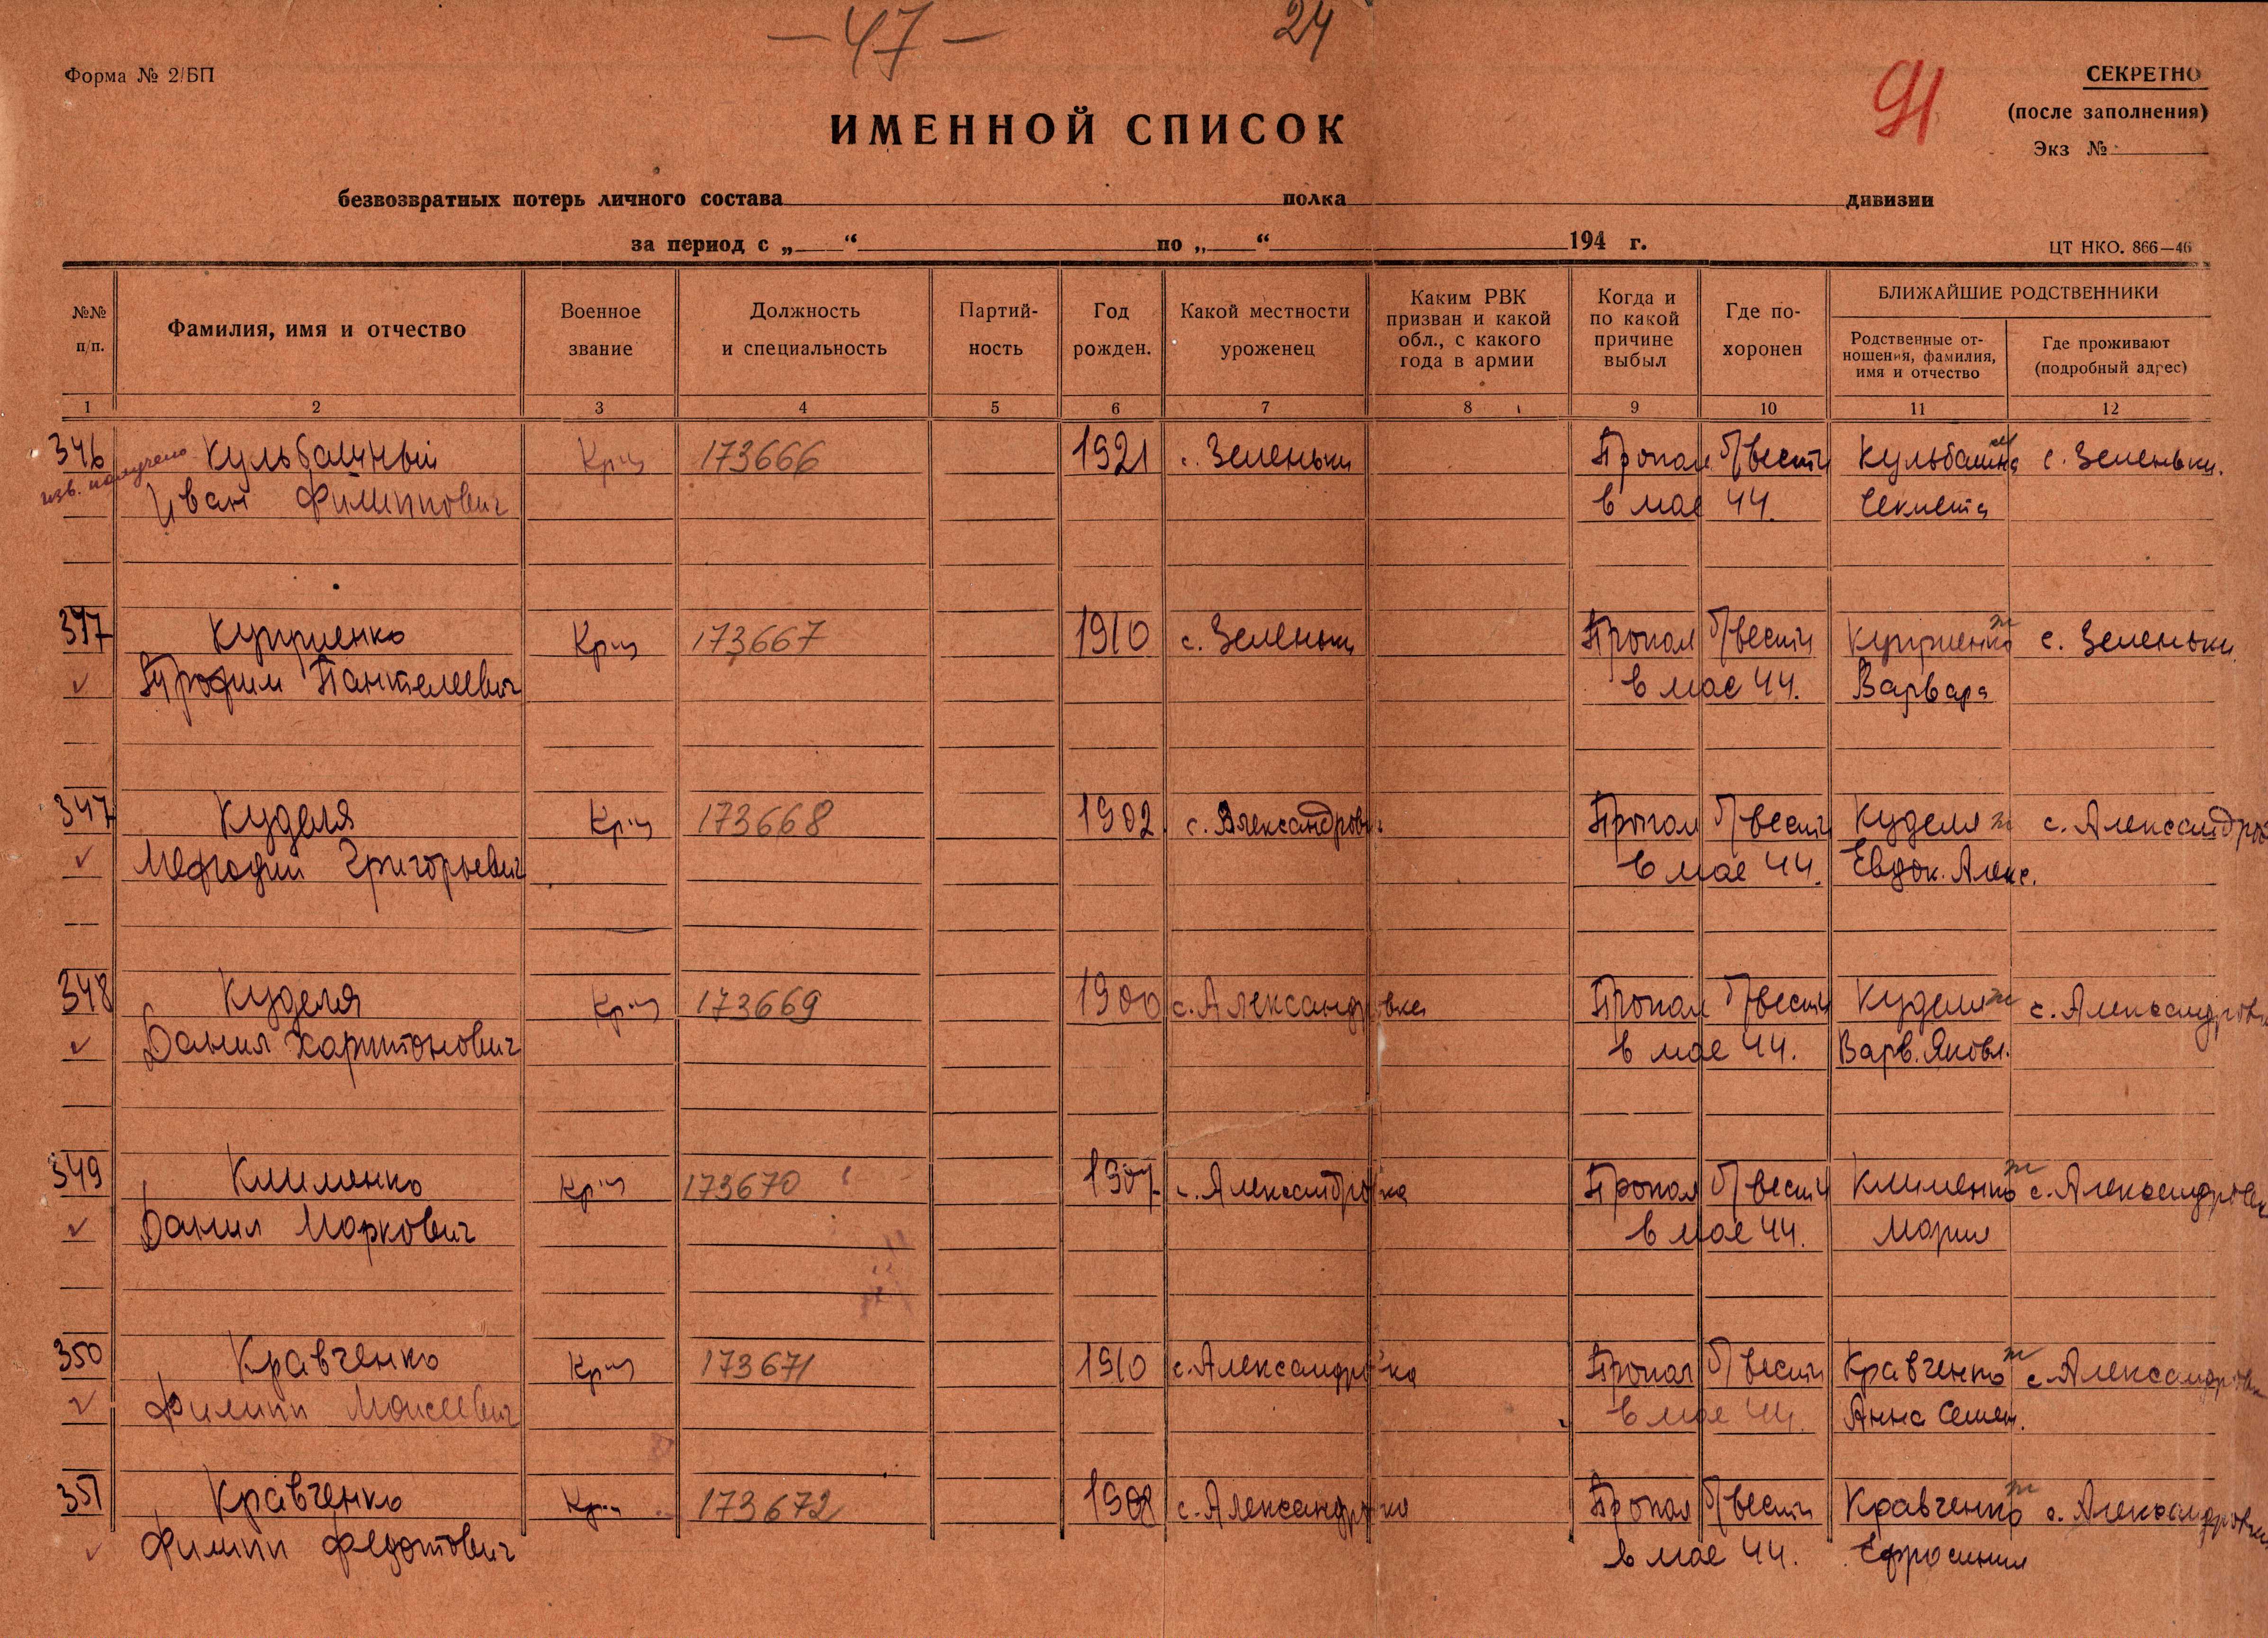 — 47 —
24
91
Форма № 2/БП
СЕКРЕТНО
(после заполнения)
Экз №
ИМЕННОЙ СПИСОК
безвозвратных потерь личного состава полка дивизии
за период с „ “ по „ “ 194 г.
ЦТ НКО. 866—46
№№ п/п.
Фамилия, имя и отчество
Военное звание
Должность и специальность
Партий-ность
Год рожден.
Какой местности уроженец
Каким РВК призван и какой обл., с какого года в армии
Когда и по какой причине выбыл
Где по-хоронен
БЛИЖАЙШИЕ РОДСТВЕННИКИ
Родственные от-ношения, фамилия, имя и отчество
Где проживают (подробный адрес)
1 2 3 4 5 6 7 8 9 10 11 12
346 Кульбашный Кр-ц 173666 1921 с. Зеленьки Пропал б/вести Кульбашна с. Зеленьки.
изв. получено Иван Филиппович в мае 44.
347 Куприенко Кр-ц 173667 1910 с. Зеленьки Пропал б/вести Куприенко ж с. Зеленьки.
Трофим Пантелеевич в мае 44. Варвара
347 Куделя Кр-ц 173668 1902 с. Александровка Пропал б/вести Куделя ж с. Александров
Мефодий Григорьевич в мае 44. Евдок. Алекс.
348 Куделя Кр-ц 173669 1900 с. Александровка Пропал б/вести Куделя ж с. Александровк
Данил Харитонович в мае 44. Варв. Яковл.
349 Клименко Кр-ц 173670 1907 с. Александровка Пропал б/вести Клименко ж с. Александровк
Данил Маркович в мае 44. Мария
350 Кравченко Кр-ц 173671 1910 с. Александровка Пропал б/вести Кравченко ж с. Александровк
Филипп Моисеевич в мае 44. Анна Семен.
351 Кравченко Кр-ц 173672 с. Александровка Пропал б/вести Кравченко ж с. Александровка
Филипп Федотович в мае 44. Ефросиния